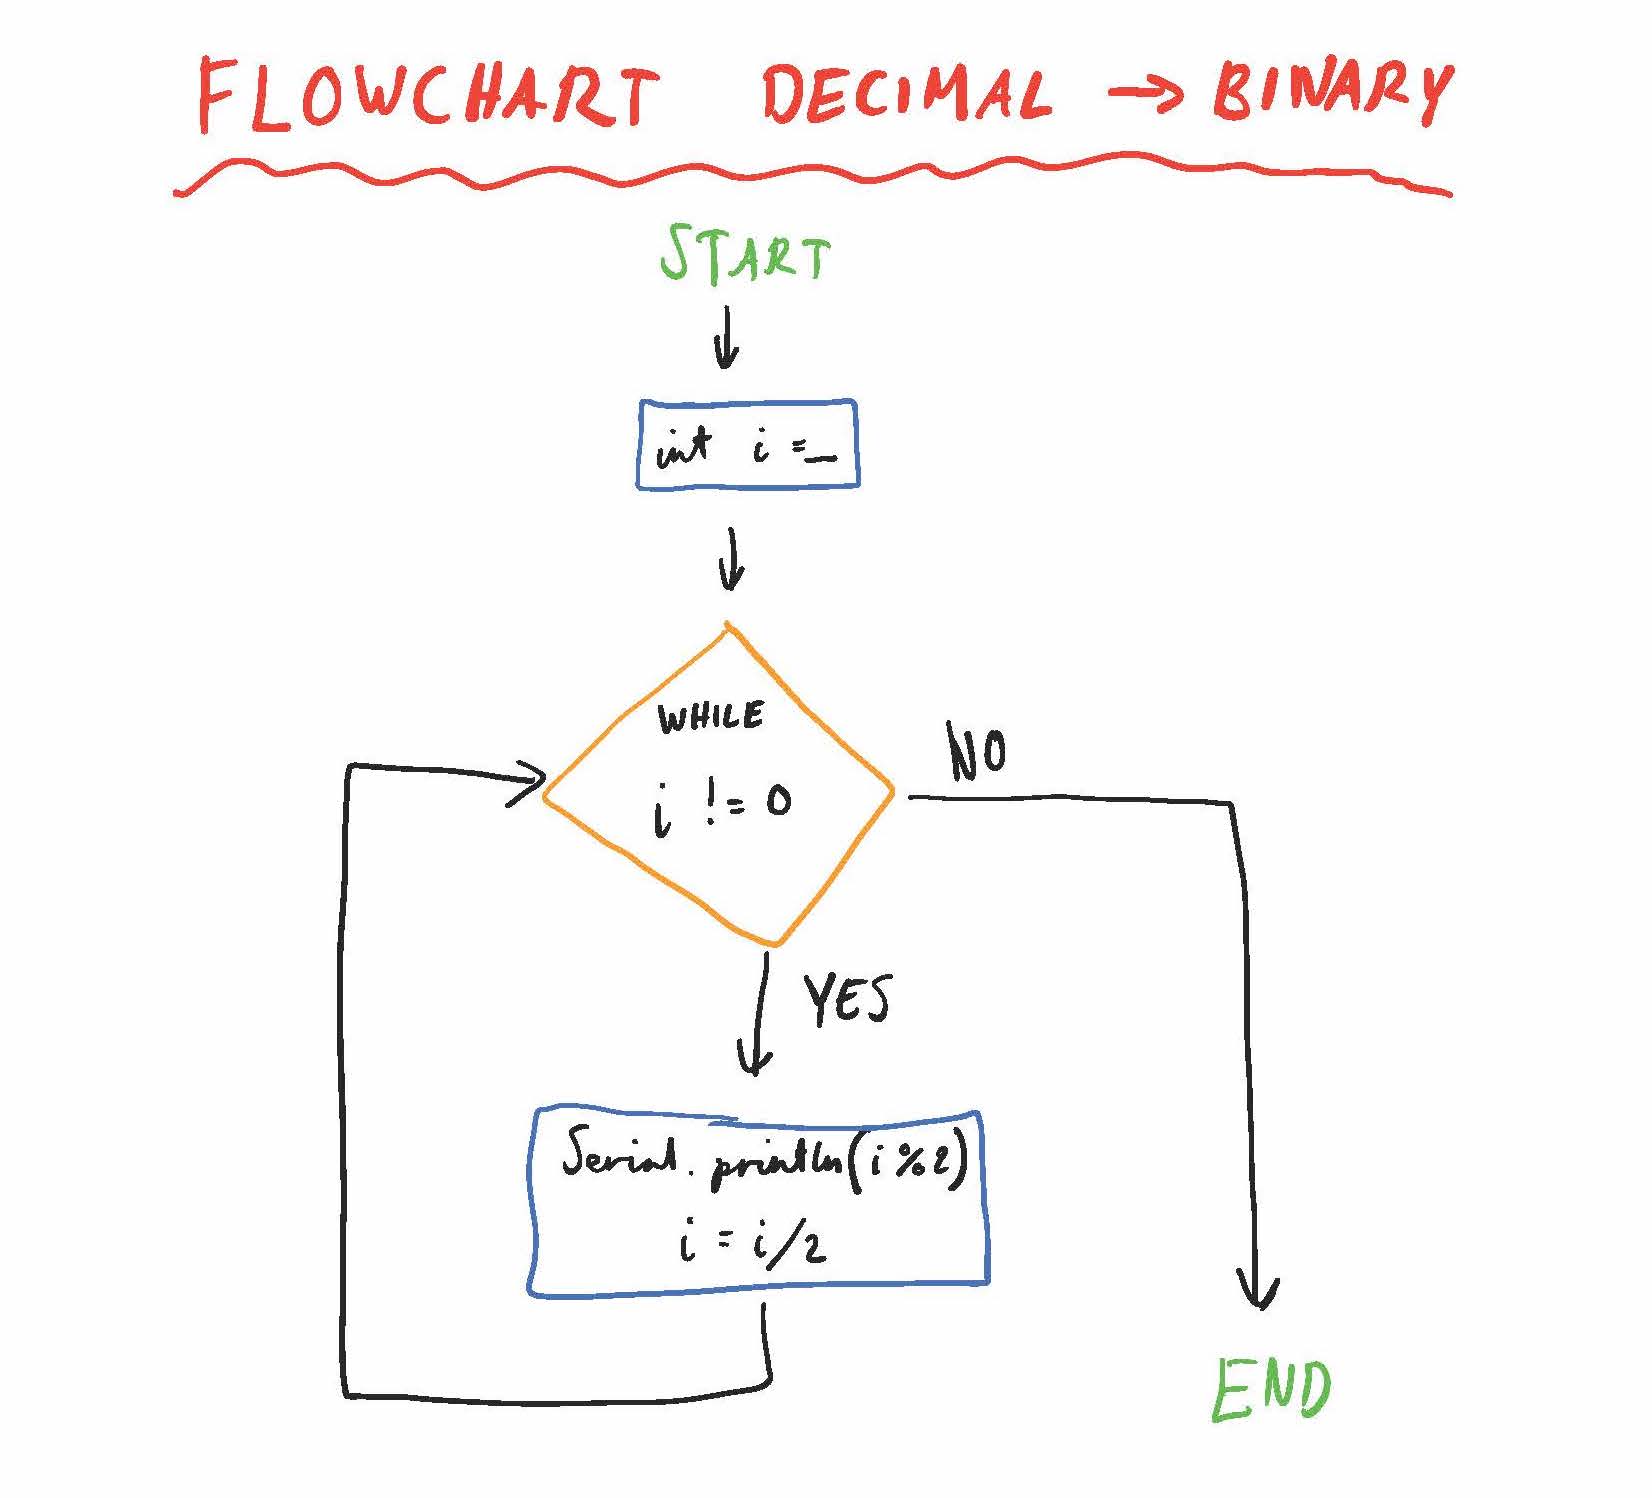 FLOWCHART DECIMAL → BINARY
START
int i =_
WHILE
i != 0
NO
YES
Serial.println(i%2)
i = i/2
END